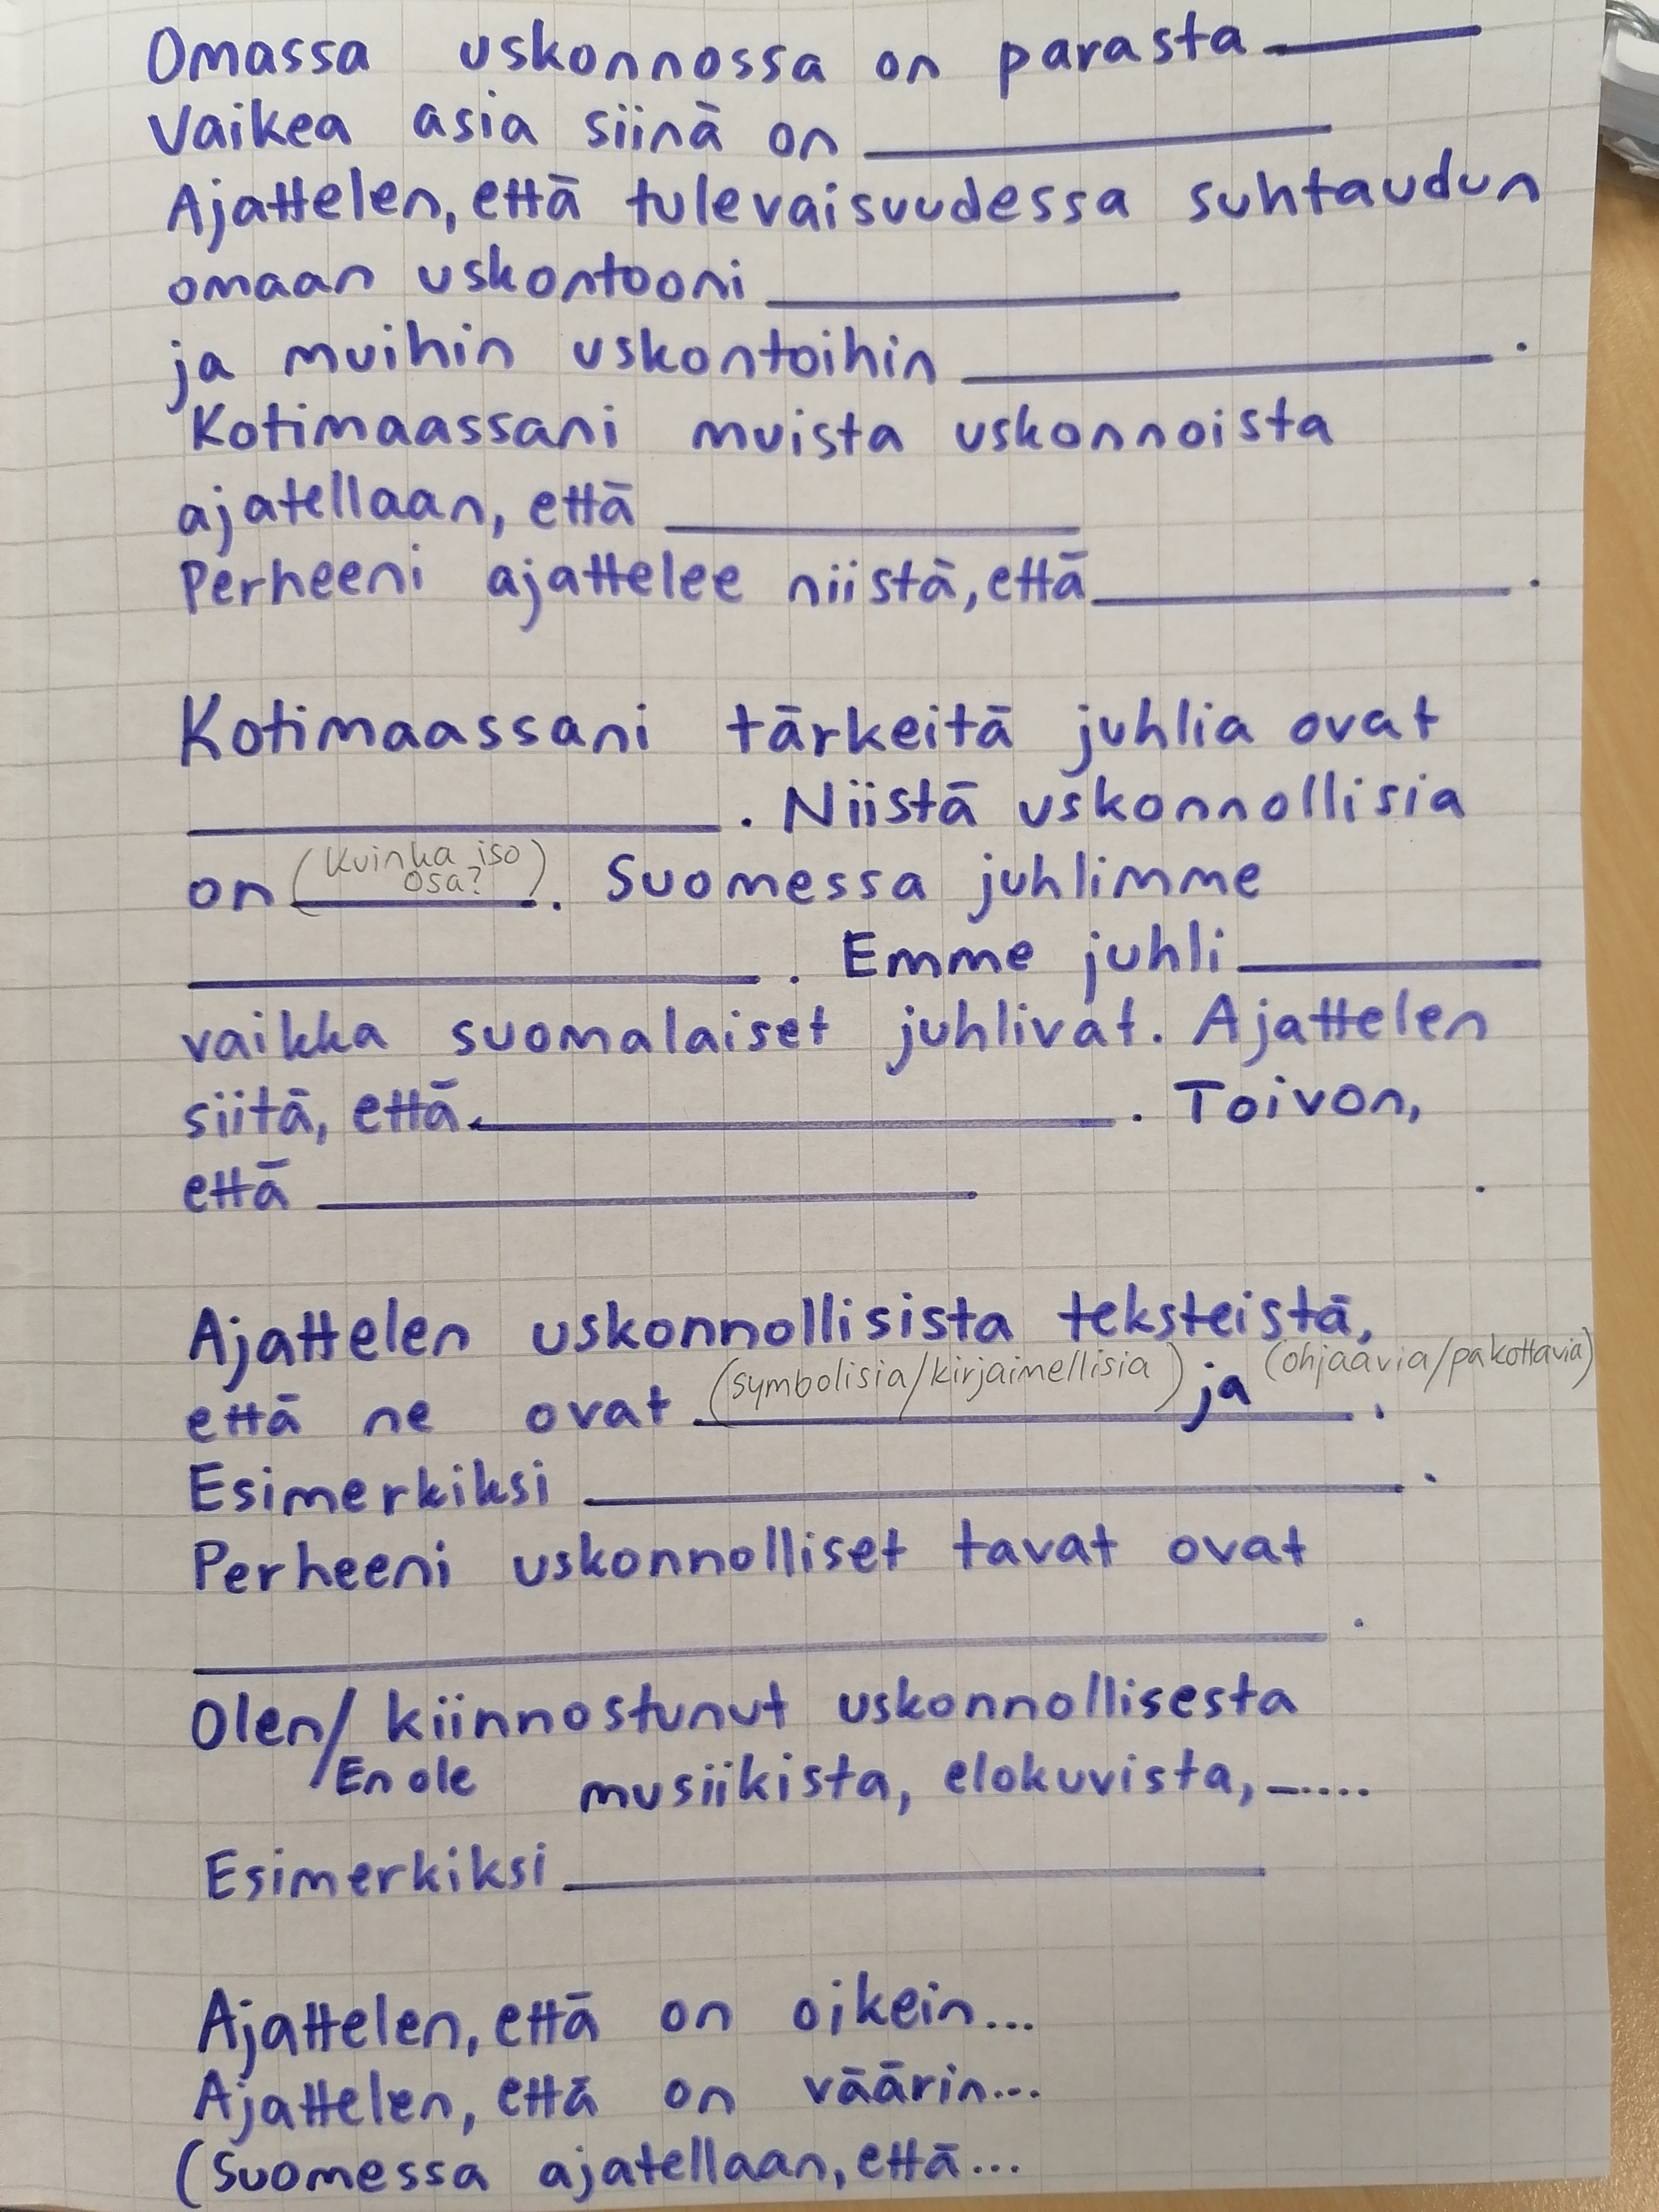 Omassa uskonnossa on parasta ______
Vaikea asia siinä on ______
Ajattelen, että tulevaisuudessa suhtaudun
omaan uskontooni ______
ja muihin uskontoihin ______.
Kotimaassani muista uskonnoista
ajatellaan, että ______
Perheeni ajattelee niistä, että ______.
Kotimaassani tärkeitä juhlia ovat
______. Niistä uskonnollisia
on (Kuinka iso osa?). Suomessa juhlimme
______. Emme juhli ______
vaikka suomalaiset juhlivat. Ajattelen
siitä, että ______. Toivon,
että ______.
Ajattelen uskonnollisista teksteistä,
että ne ovat (symbolisia/kirjaimellisia) ja (ohjaavia/pakottavia).
Esimerkiksi ______.
Perheeni uskonnolliset tavat ovat
______.
Olen/ kiinnostunut uskonnollisesta
En ole musiikista, elokuvista, ......
Esimerkiksi ______
Ajattelen, että on oikein...
Ajattelen, että on väärin...
(Suomessa ajatellaan, että...